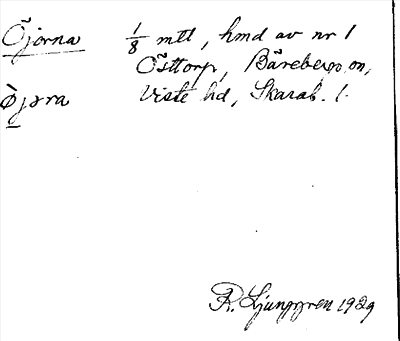 Öjorna 1/8 mtl, hmd av nr 1
Östtorp, Bärebergs sn,
Òjəra Viste hd, Skarab. l.
R. Ljunggren 1929